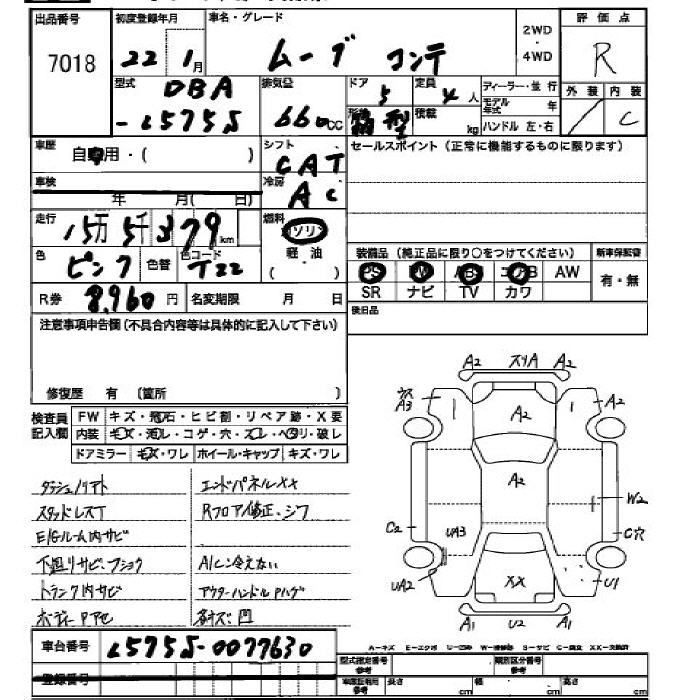 出品番号 初度登録年月 車名・グレード 2WD 4WD 評価点
7018 22年1月 ムーブ コンテ R
型式 DBA-L575S 排気量 660cc ドア 5 定員 4人 ディーラー・並行 外装 内装
形状 箱型 積載 kg モデル年式 年 ハンドル 左・右 C
車歴 自家用・( ) シフト CAT セールスポイント (正常に機能するものに限ります)
車検 年 月( 日) 冷房 AC
走行 15万5千379km 燃料 ガソリン 軽油 ( )
色 ピンク 色替 色コード T22
装備品 (純正品に限り○をつけてください) 新車保証書
PS PW ABS エアB AW 有・無
SR ナビ TV カワ
R券 8,960円 名変期限 月 日
後日品
注意事項申告欄(不具合内容等は具体的に記入して下さい)
修復歴 有 (箇所 )
検査員記入欄 FW キズ・飛石・ヒビ割・リペア跡・X要
内装 キズ・汚レ・コゲ・穴・スレ・ヘタリ・破レ
ドアミラー キズ・ワレ ホイール・キャップ キズ・ワレ
ダッシュノリアト エンドパネルXX
スタッドレスT Rフロア修正、シワ
E/Gルーム内サビ
下廻りサビ、フショク A/C冷えない
トランク内サビ アウターハンドルPハゲ
ボディーPアセ
A2 スリA A2
穴 A3 A2 A2
A2
W2
C2 UA3 C穴
UA2 XX U1
A1 U2 A1
車台番号 L575S-0077630
登録番号
A-キズ E-エクボ U-凹み W-補修跡 S-サビ C-腐食 XX-交換済
型式指定番号 参考 類別区分番号 参考
車庫証明用 参考 長さ cm 幅 cm 高さ cm